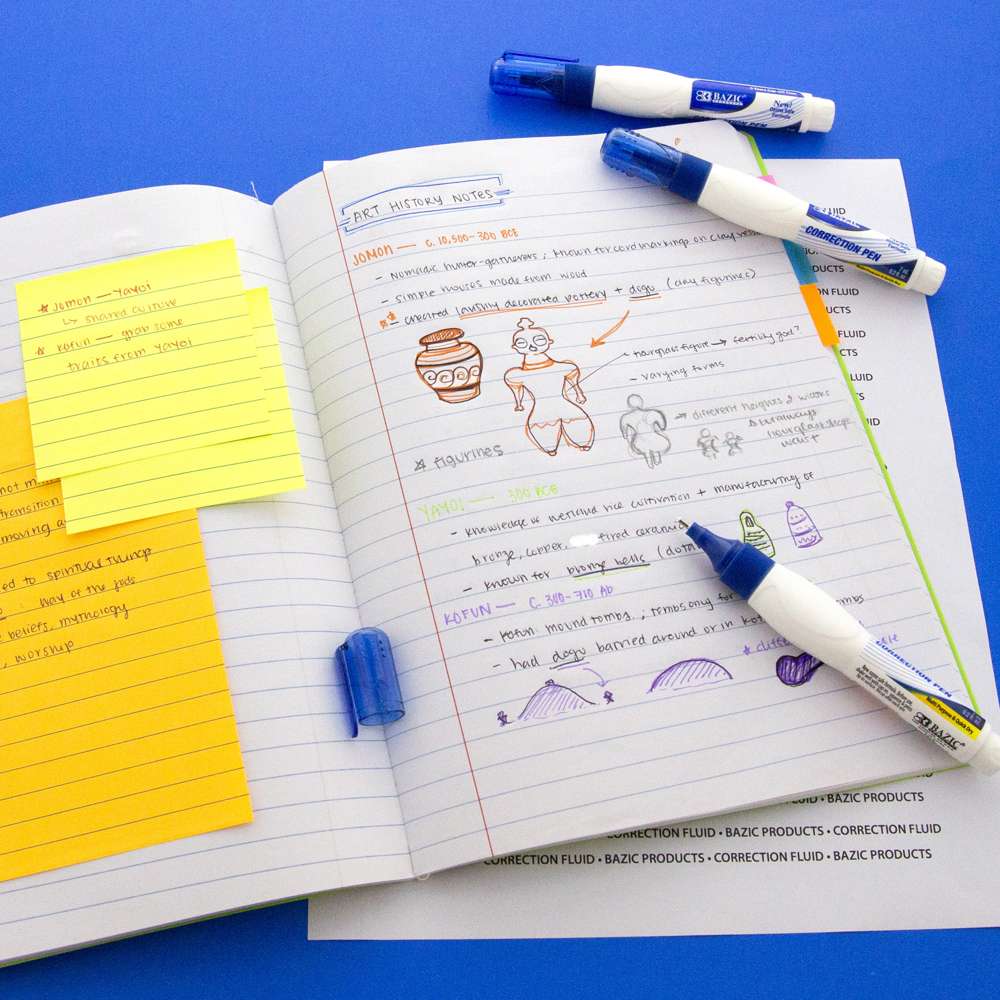 ART HISTORY NOTES
JOMON — C. 10,500-300 BCE
- Nomadic hunter-gatherers ; known for cord markings on clay
- simple houses made from wood
- created lavishly decorated pottery + dogu (clay figurines)
hourglass figure → fertility god?
- varying forms
→ different heights & widths
always
hourglass shape
waist
figurines
YAYOI — 300 BCE
- knowledge of wetland rice cultivation + manufacturing of
bronze, copper, fired ceramic
- known for bronze bells (dota
KOFUN — C. 300-710 AD
- Kofun: mound tombs ; tombs only for
- had dogu barried around or in
★ Jomon — Yayoi
↳ shared culture
★ Kofun — grab some
traits from Yayoi
not m
transition
moving a
ed to spiritual things
way of the gods
beliefs, mythology
, worship
BAZIC
New!
CORRECTION PEN
CORRECTION PEN
Multi Purpose & Quick Dry
BAZIC
FLUID
ODUCTS
N FLUID
UCTS
FLUID
CTS
LUID
FLUID • BAZIC PRODUCTS
CORRECTION FLUID • BAZIC PRODUCTS • CORRECTION FLUID
CORRECTION FLUID • BAZIC PRODUCTS • CORRECTION FLUID • BAZIC PRODUCTS